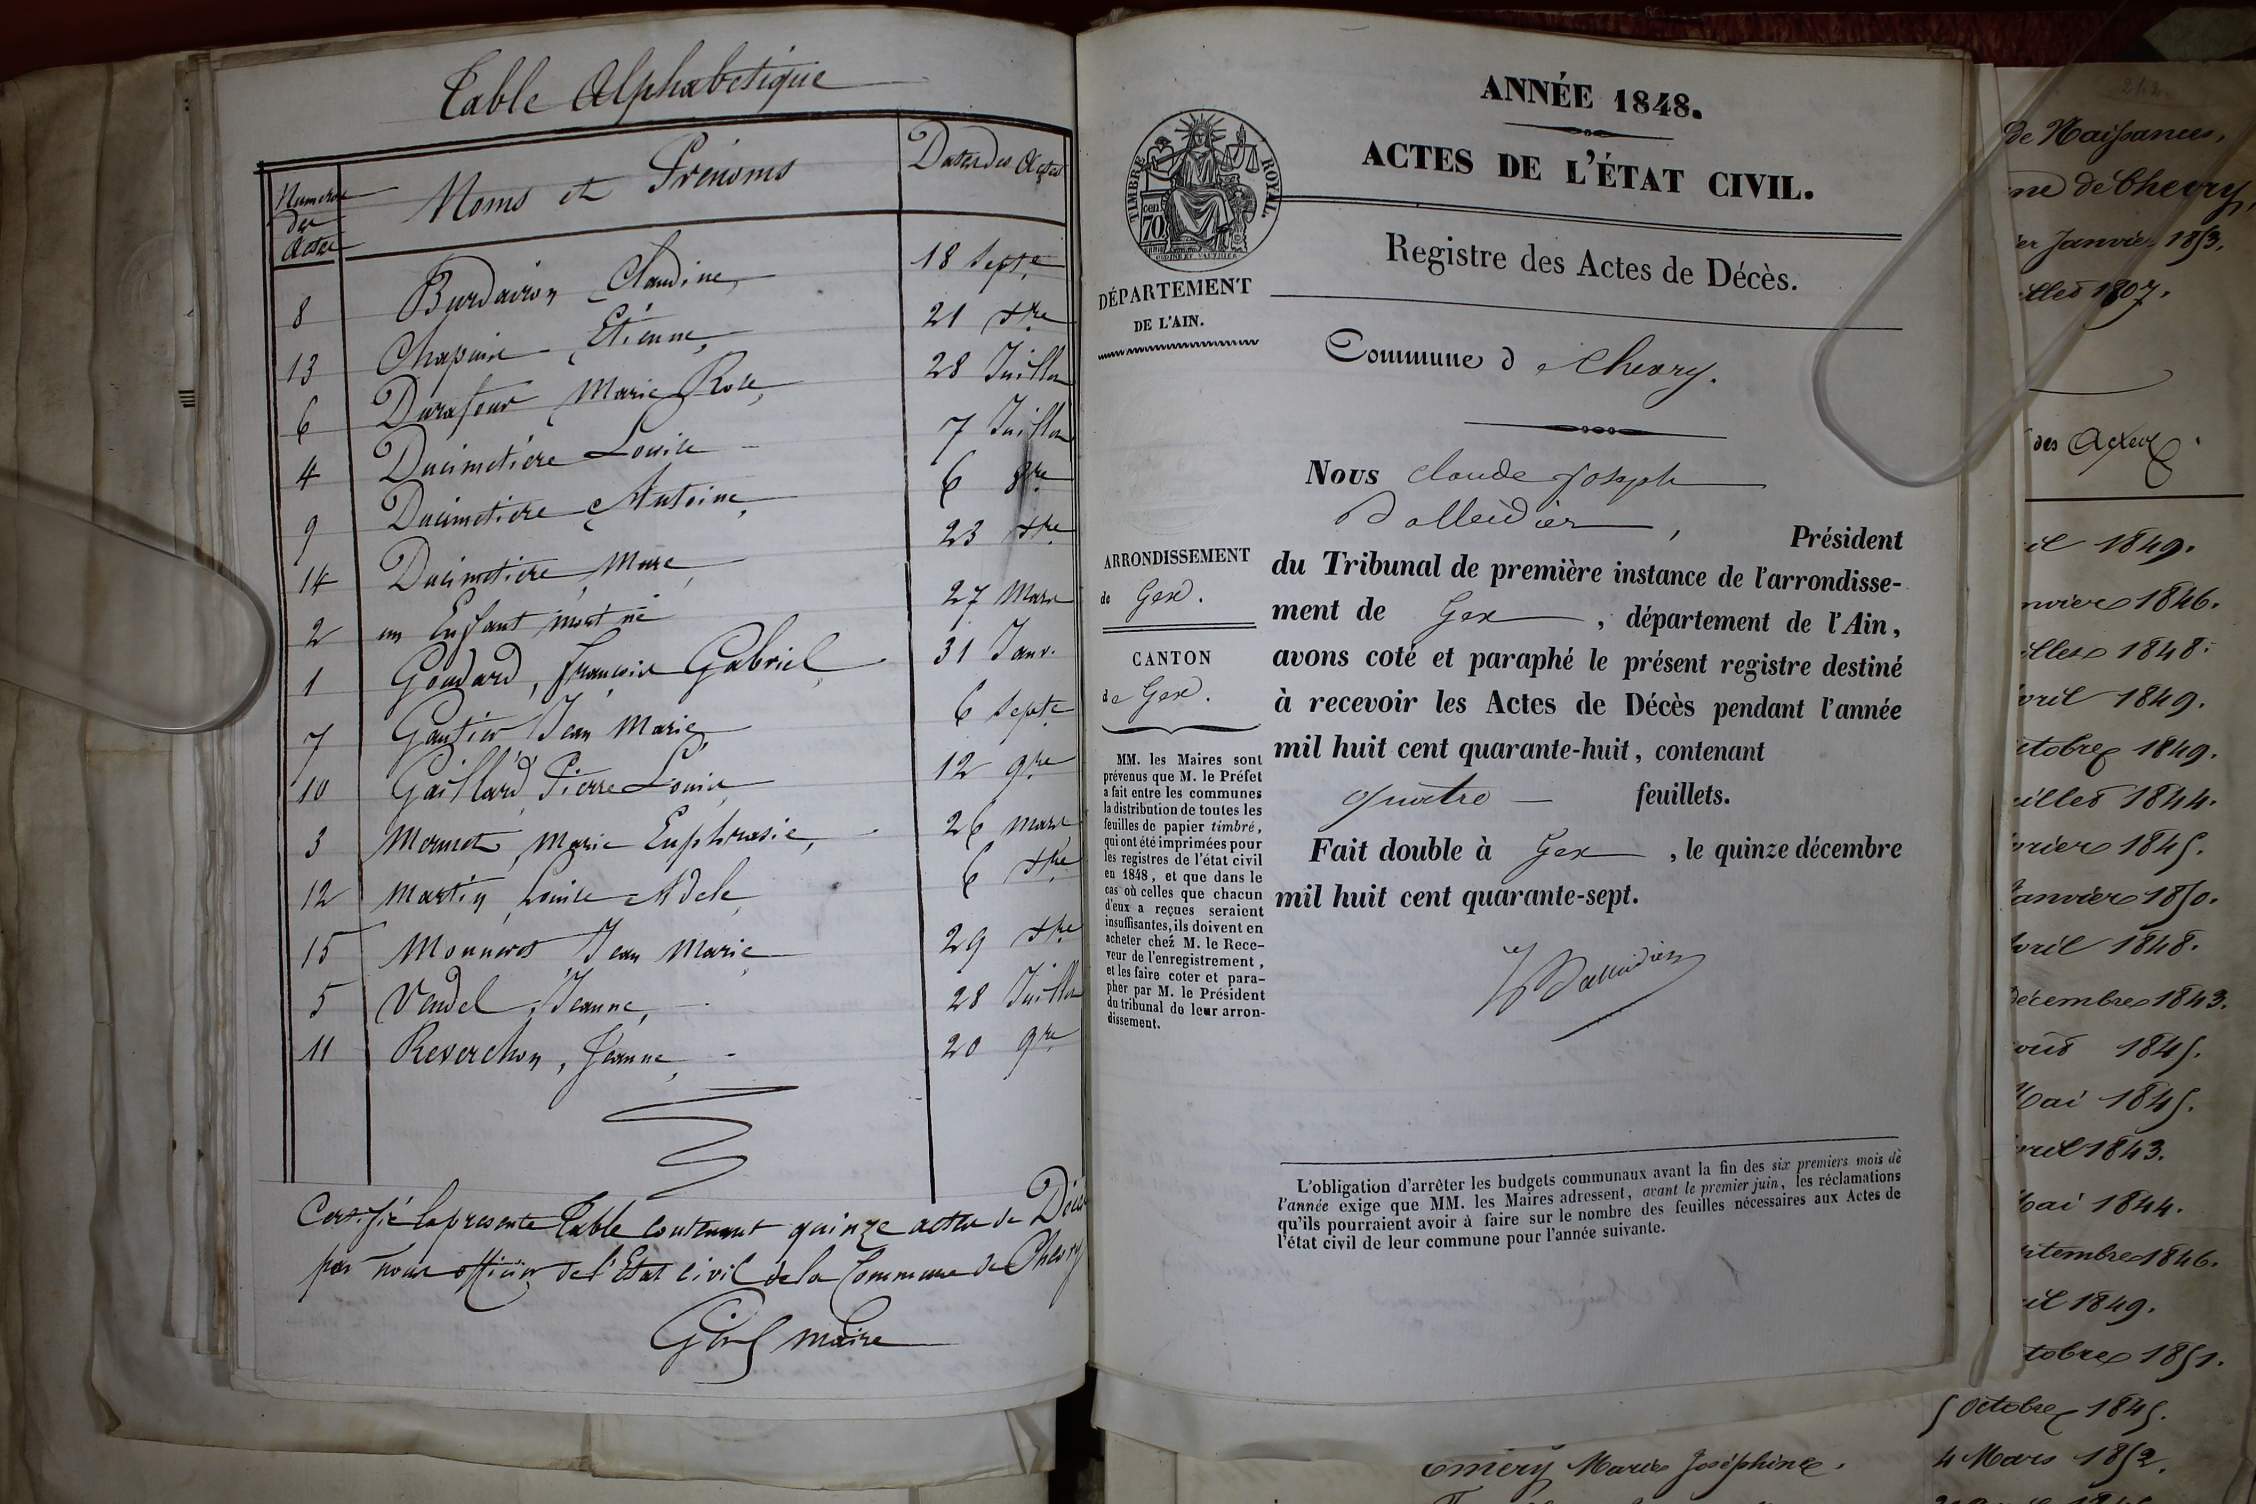 Table Alphabetique
Numeros
des
Actes
Noms et Prénoms
Dates des Actes
8 Burdairon Claudine, 18 Septe
13 Chapuis Etienne, 21 Xbre
6 Durafour Marie Rose, 28 Juillet
4 Ducimetière Louise 7 Juillet
9 Ducimetière Antoine, 6 8bre
14 Ducimetière Marc, 23 Xbre
2 un Enfant mort né 27 Mars
1 Goudard, François Gabriel, 31 Janv.
7 Gautier Jean Marie, 6 Septe
10 Gaillard, Pierre Louis, 12 9bre
3 Mermet, Marie Euphrasie, 26 mars
12 Martin Louise Adele, 6 Xbre
15 Monneret Jean Marie, 29 Xbre
5 Vendel, Jeanne, 28 Juillet
11 Reverchon, Jeanne, 20 9bre
Certifié la presente Table contenant quinze actes de Décès
par nous officier de l'Etat civil de la Commune de Chevry
maire
ANNÉE 1848.
ACTES DE L'ÉTAT CIVIL.
TIMBRE ROYAL.
70 cen
Registre des Actes de Décès.
DÉPARTEMENT
DE L'AIN.
Commune d Chevry.
Nous Claude Joseph
Dalleidier, Président
du Tribunal de première instance de l'arrondisse-
ment de Gex, département de l'Ain,
avons coté et paraphé le présent registre destiné
à recevoir les Actes de Décès pendant l'année
mil huit cent quarante-huit, contenant
quatre feuillets.
Fait double à Gex, le quinze décembre
mil huit cent quarante-sept.
ARRONDISSEMENT
de Gex.
CANTON
de Gex.
MM. les Maires sont
prévenus que M. le Préfet
a fait entre les communes
la distribution de toutes les
feuilles de papier timbré,
qui ont été imprimées pour
les registres de l'état civil
en 1848, et que dans le
cas où celles que chacun
d'eux a reçues seraient
insuffisantes, ils doivent en
acheter chez M. le Rece-
veur de l'enregistrement,
et les faire coter et para-
pher par M. le Président
du tribunal de leur arron-
dissement.
L'obligation d'arrêter les budgets communaux avant la fin des six premiers mois de
l'année exige que MM. les Maires adressent, avant le premier juin, les réclamations
qu'ils pourraient avoir à faire sur le nombre des feuilles nécessaires aux Actes de
l'état civil de leur commune pour l'année suivante.
de Naissances,
ne de Chevry,
er Janvier 1853.
illet 1807.
des Actes
il 1849.
nvier 1846.
illet 1848.
vril 1849.
ctobre 1849.
illet 1844.
vrier 1845.
Janvier 1850.
Avril 1848.
Décembre 1843.
oût 1845.
Mai 1845.
vril 1843.
Mai 1844.
ptembre 1846.
il 1849.
tobre 1851.
5 Octobre 1845.
Emery Marie Joséphine. 4 Mars 1852.